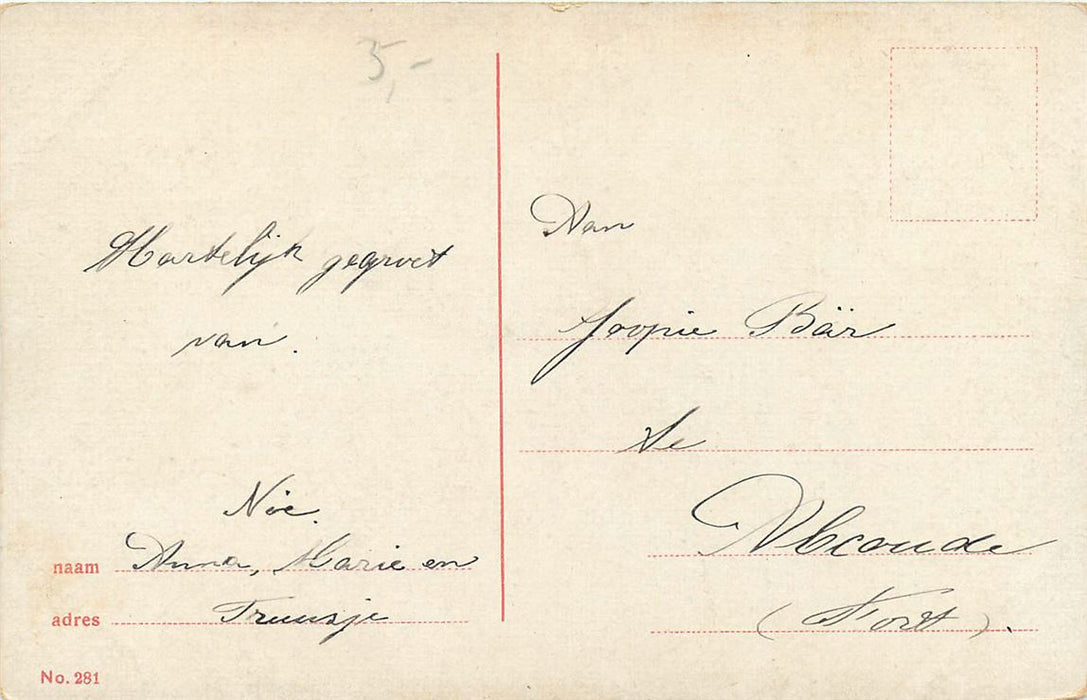 5,-
Hartelijk gegroet
van.
Nöe.
naam Anna, Marie en
adres Truusje
No. 281
Aan
Joopie Bär
te
Abcoude
(Fort).